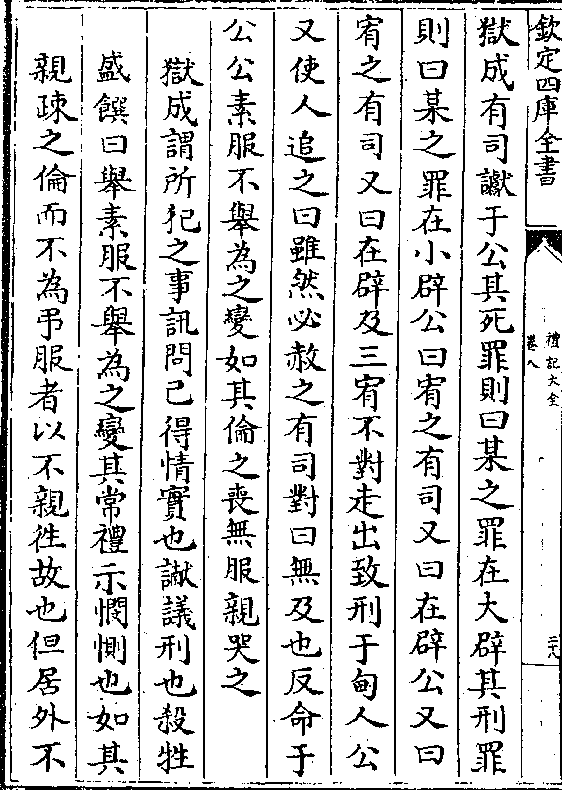 欽定四庫全書
禮記大全
卷八
三八
獄成有司讞于公其死罪則曰某之罪在大辟其刑罪
則曰某之罪在小辟公曰宥之有司又曰在辟公又曰
宥之有司又曰在辟及三宥不對走出致刑于甸人公
又使人追之曰雖然必赦之有司對曰無及也反命于
公公素服不舉為之變如其倫之喪無服親哭之
獄成謂所犯之事訊問已得情實也讞議刑也殺牲
盛饌曰舉素服不舉為之變其常禮示憫惻也如其
親疎之倫而不為弔服者以不親徃故也但居外不